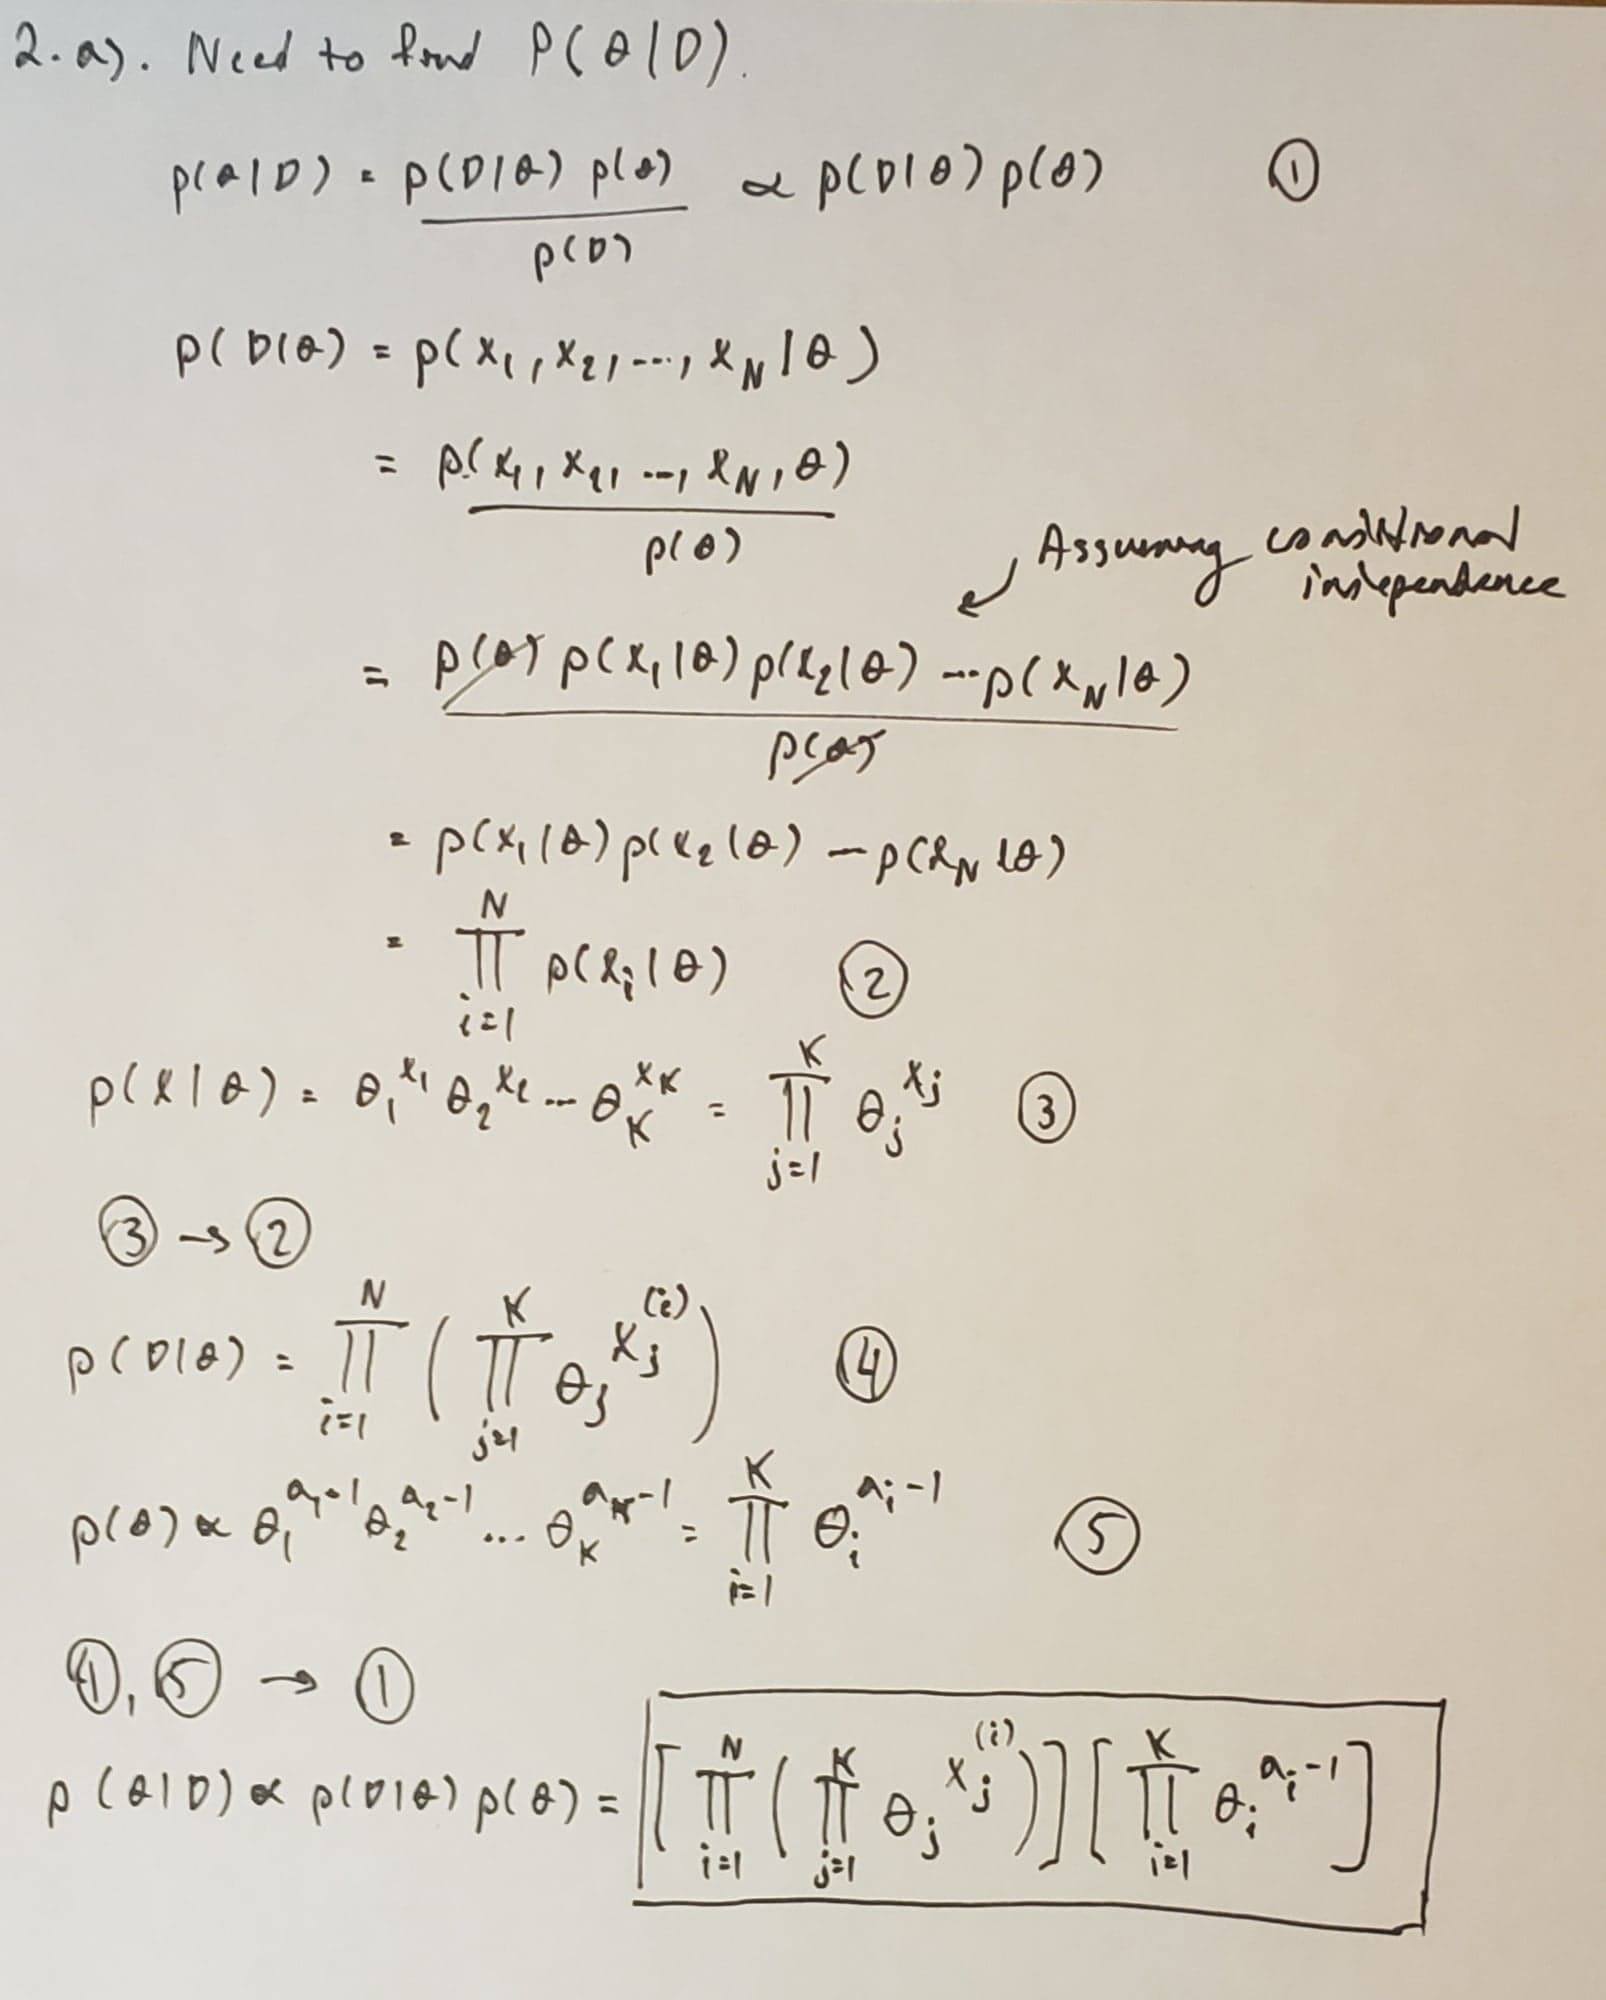 2.a). Need to find P(θ|D).
p(θ|D) = p(D|θ) p(θ) / p(D) ∝ p(D|θ) p(θ) ①
p(D|θ) = p(x₁, x₂, ..., x_N | θ)
= p(x₁, x₂, ..., x_N, θ) / p(θ)
Assuming conditional
independence
= p(θ) p(x₁|θ) p(x₂|θ) ... p(x_N|θ) / p(θ)
= p(x₁|θ) p(x₂|θ) – p(x_N|θ)
= ∏_{i=1}^{N} p(x_i|θ) ②
p(x|θ) = θ₁^{x₁} θ₂^{x₂} ... θ_K^{x_K} = ∏_{j=1}^{K} θ_j^{x_j} ③
③ → ②
p(D|θ) = ∏_{i=1}^{N} ( ∏_{j=1}^{K} θ_j^{x_j^{(i)}} ) ④
p(θ) ∝ θ₁^{a₁-1} θ₂^{a₂-1} ... θ_K^{a_K-1} = ∏_{i=1}^{K} θ_i^{a_i-1} ⑤
④, ⑤ → ①
p(θ|D) ∝ p(D|θ) p(θ) = [ ∏_{i=1}^{N} ( ∏_{j=1}^{K} θ_j^{x_j^{(i)}} ) ] [ ∏_{i=1}^{K} θ_i^{a_i-1} ]